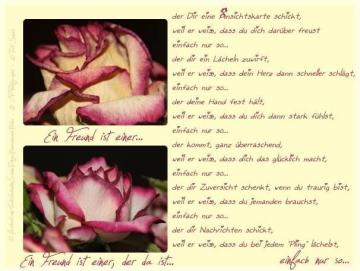 der Dir eine Ansichtskarte schickt,
weil er weis, dass du dich darüber freust
einfach nur so...
der dir ein Lächeln zuwirft,
weil er weis, dass dein Herz dann schneller schlägt,
einfach nur so...
der deine Hand fest hält,
weil er weis, dass du dich dann stark fühlst,
einfach nur so...
der kommt, ganz überraschend,
weil er weis, dass dich das glücklich macht,
einfach nur so...
der dir Zuversicht schenkt, wenn du traurig bist,
weil er weis, dass du jemanden brauchst,
einfach nur so...
der dir Nachrichten schickt,
weil er weis, dass du bei jedem "Pling" lächelst,
einfach nur so...
Ein Freund ist einer...
Ein Freund ist einer, der da ist...